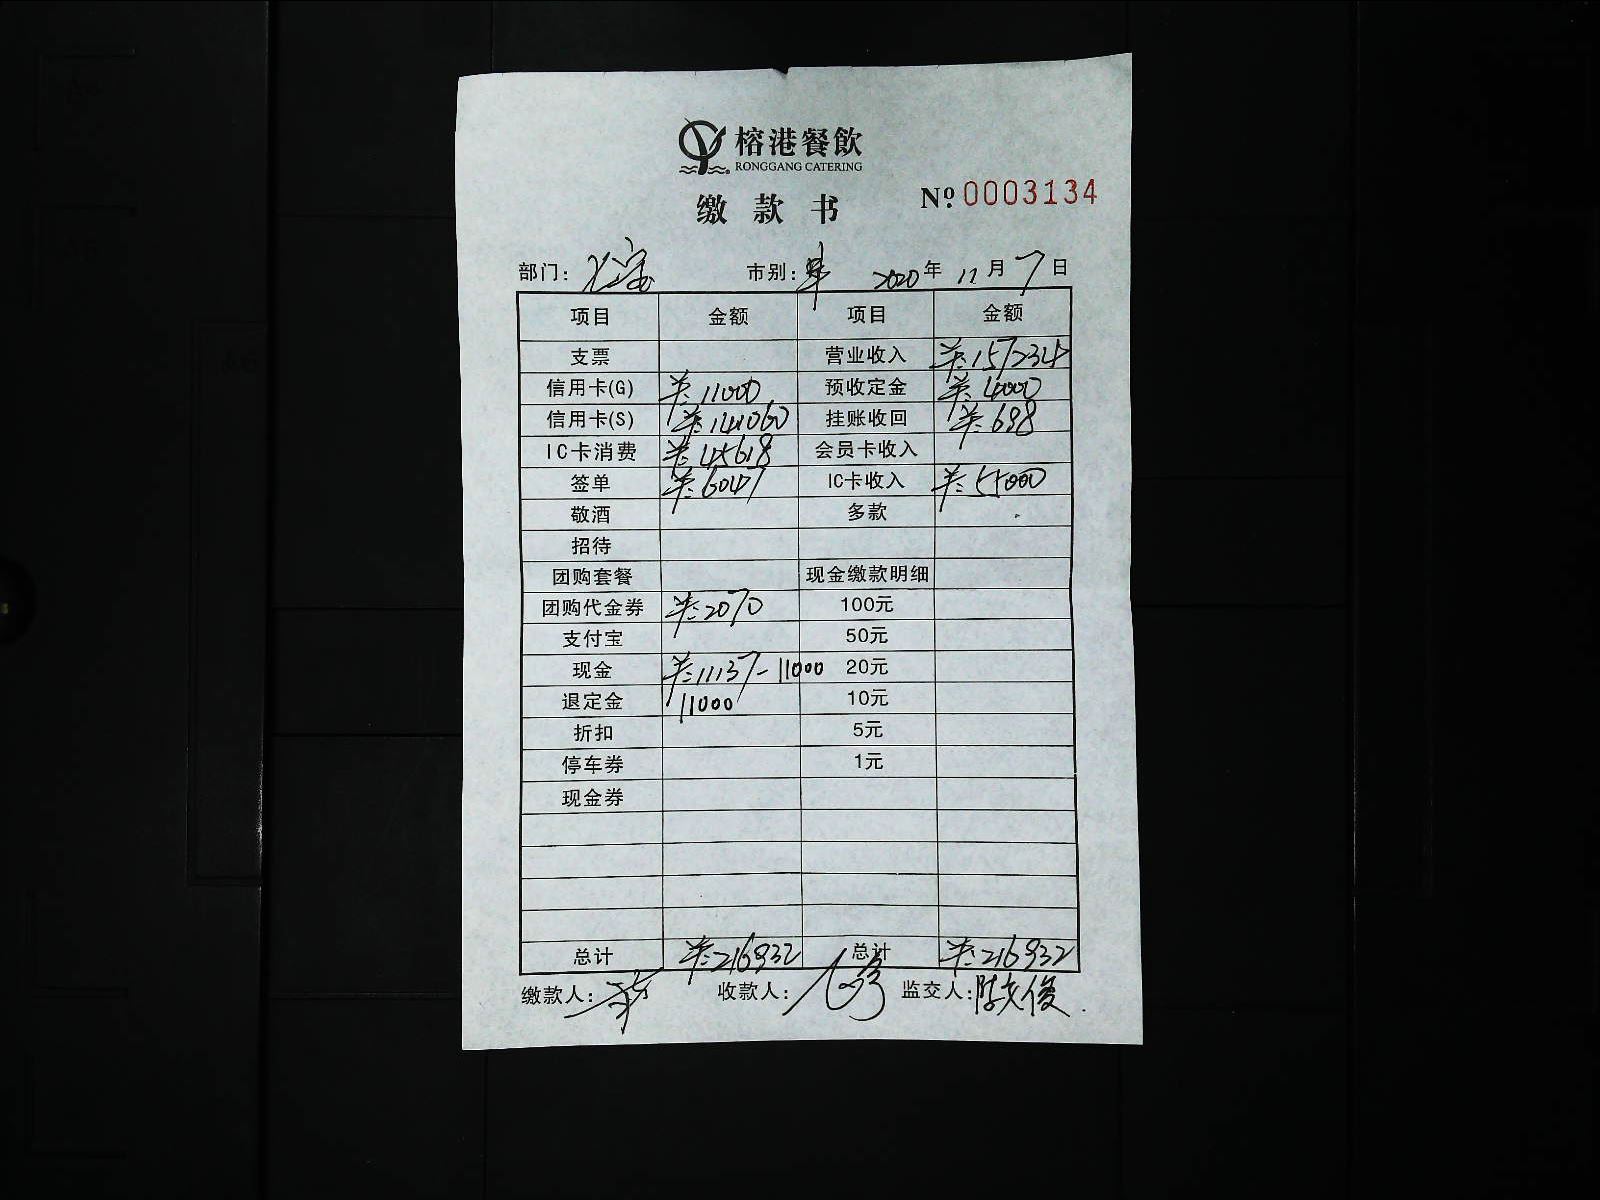 榕港餐飲
RONGGANG CATERING
缴款书 Nº 0003134
部门: 市别: 2020年 11月 7日
项目 金额 项目 金额
支票 营业收入 ¥:157234
信用卡(G) ¥:11000 预收定金 ¥:4000
信用卡(S) ¥:141060 挂账收回 ¥:698
IC卡消费 ¥:45618 会员卡收入
签单 ¥:6047 IC卡收入 ¥:55000
敬酒 多款
招待
团购套餐 现金缴款明细
团购代金券 ¥:2070 100元
支付宝 50元
现金 ¥:11137-11000 20元
退定金 11000 10元
折扣 5元
停车券 1元
现金券
总计 ¥:216932 总计 ¥:216932
缴款人: 收款人: 监交人:陈文俊